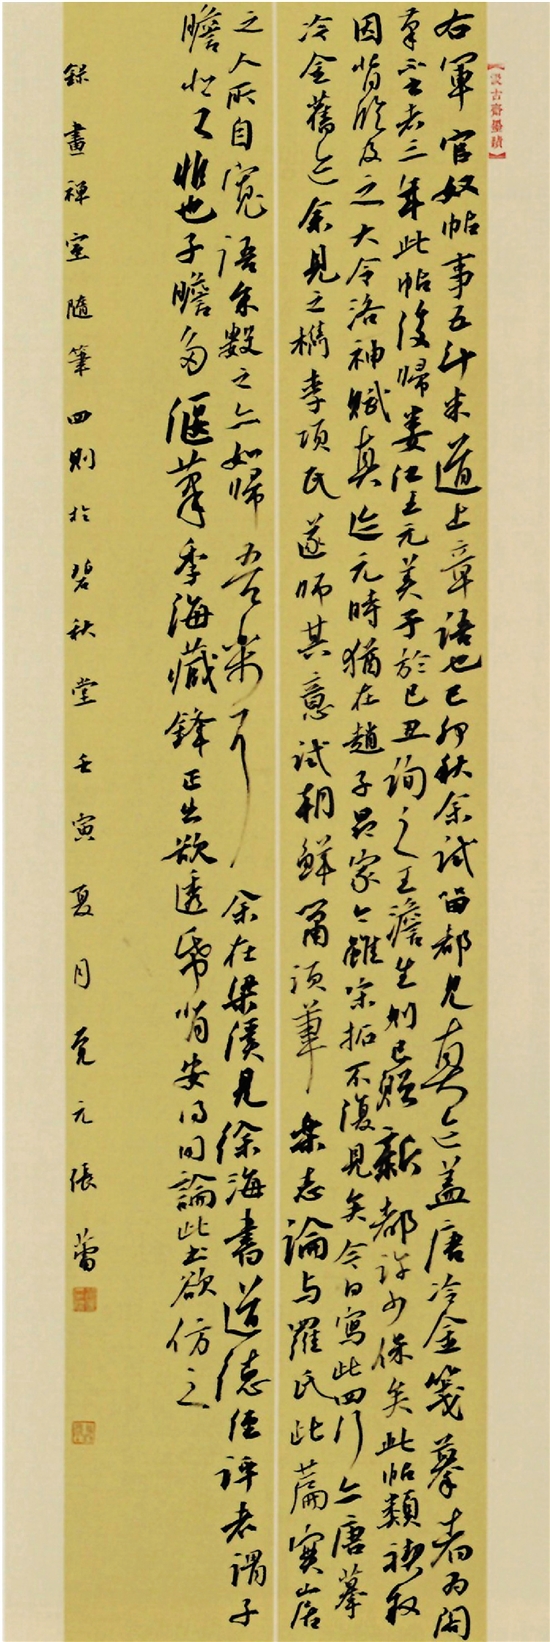 【汲古齋墨蹟】
右軍官奴帖事五斗米道上章語也己卯秋余試留都見真迹蓋唐冷金箋摹者為閣
筆書者三年此帖後歸婁江王元美予於己丑詢之王澹生則已贈新都許少保矣此帖類禊敘
因背臨及之大令洛神賦真迹元時猶在趙子昂家今雖宋拓不復見矣今日寫此四行亦唐摹
冷金舊迹余見之檇李項氏遂師其意試朝鮮筩須筆 樂志論与羅氏此篇實居
之人所自寬語余數之亦如歸 吾 余在梁溪見徐海書道德經評者謂子
瞻 非也子瞻多偃筆季海藏鋒正出欲透紙背安得同論此書欲仿之
錄畫禪室隨筆四則於碧秋堂壬寅夏月 元張蕾